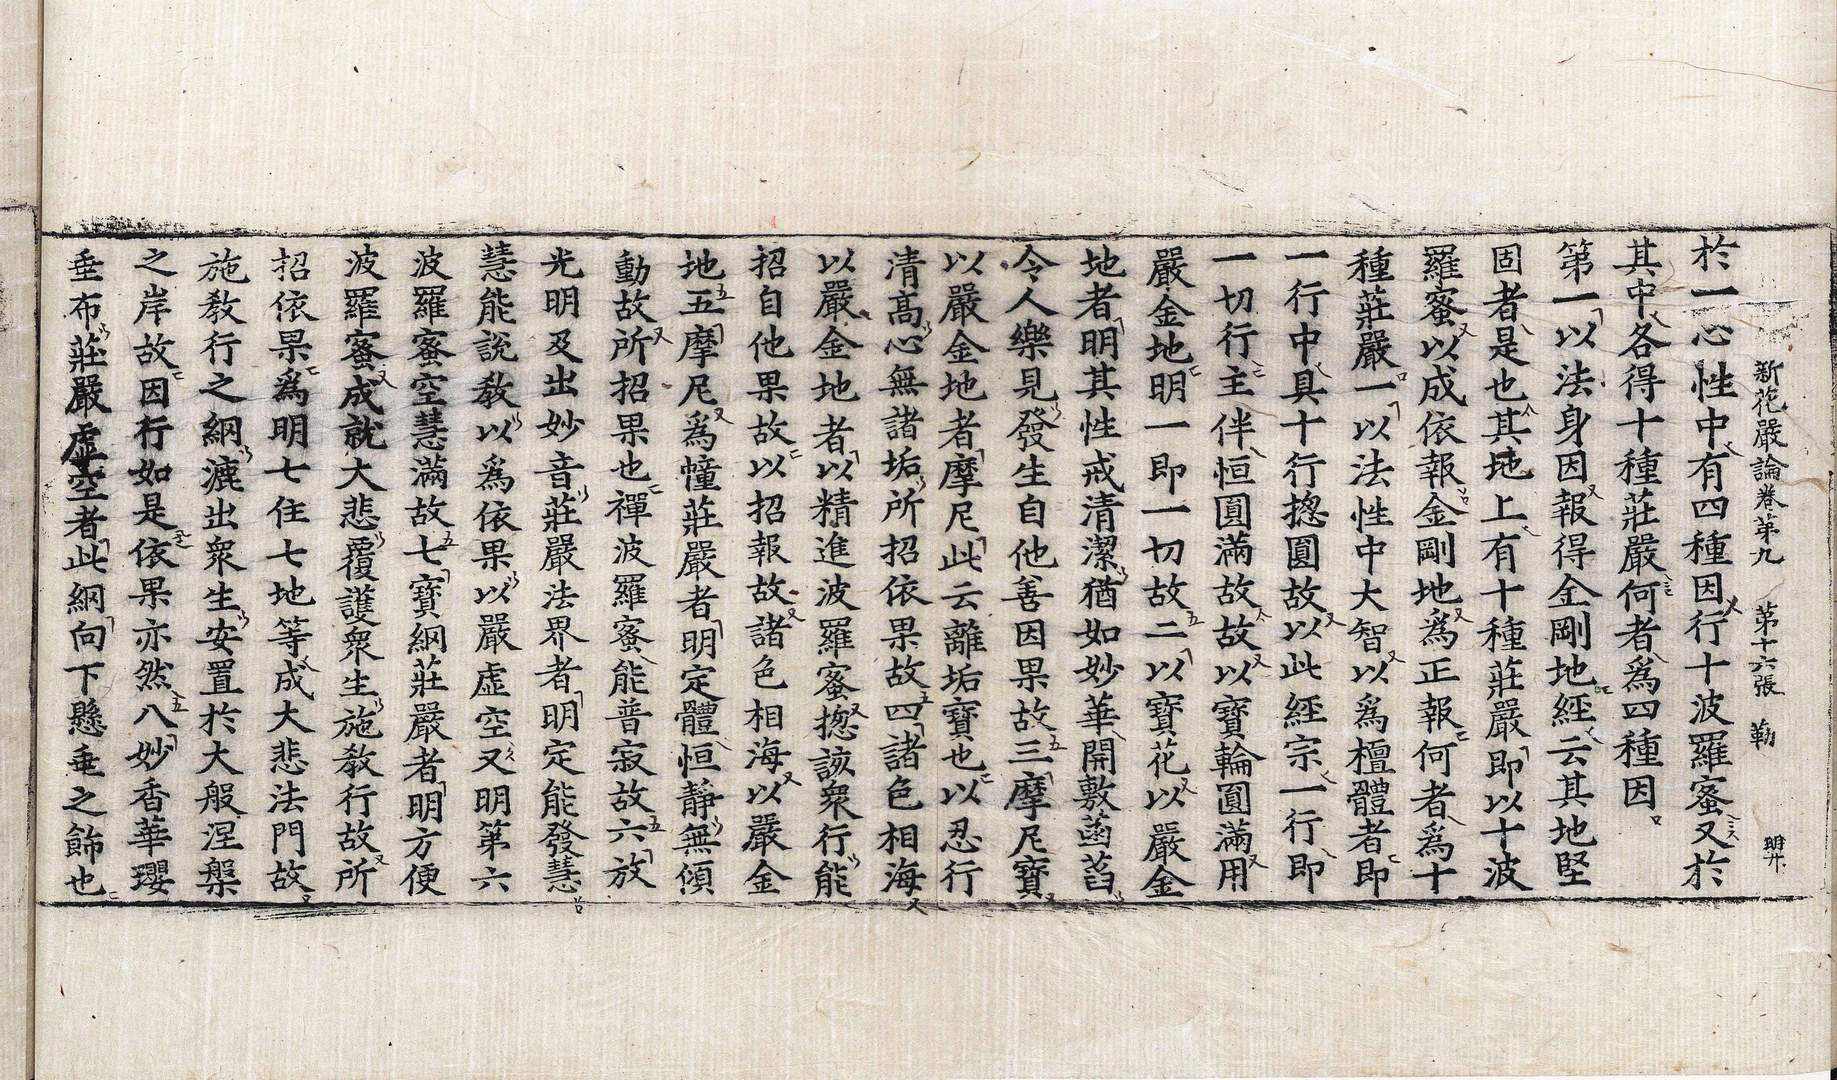 新花嚴論卷第九 第十六張 勒
於一心性中有四種因行十波羅蜜又於
其中各得十種莊嚴何者爲四種因
第一以法身因報得金剛地經云其地堅
固者是也其地上有十種莊嚴即以十波
羅蜜以成依報金剛地爲正報何者爲十
種莊嚴一以法性中大智以爲檀體者即
一行中具十行揔圓故以此經宗一行即
一切行主伴恒圓滿故故以寶輪圓滿用
嚴金地明一即一切故二以寶花以嚴金
地者明其性戒清潔猶如妙華開敷菡萏
令人樂見發生自他善因果故三摩尼寶
以嚴金地者摩尼此云離垢寶也以忍行
清高心無諸垢所招依果故四諸色相海
以嚴金地者以精進波羅蜜揔該衆行能
招自他果故以招報故諸色相海以嚴金
地五摩尼爲幢莊嚴者明定體恒靜無傾
動故所招果也禪波羅蜜能普寂故六放
光明及出妙音莊嚴法界者明定能發慧
慧能說教以爲依果以嚴虛空又明第六
波羅蜜空慧滿故七寶網莊嚴者明方便
波羅蜜成就大悲覆護衆生施教行故所
招依果爲明七住七地等成大悲法門故
施教行之網漉出衆生安置於大般涅槃
之岸故因行如是依果亦然八妙香華瓔
垂布莊嚴虛空者此網向下懸垂之飾也